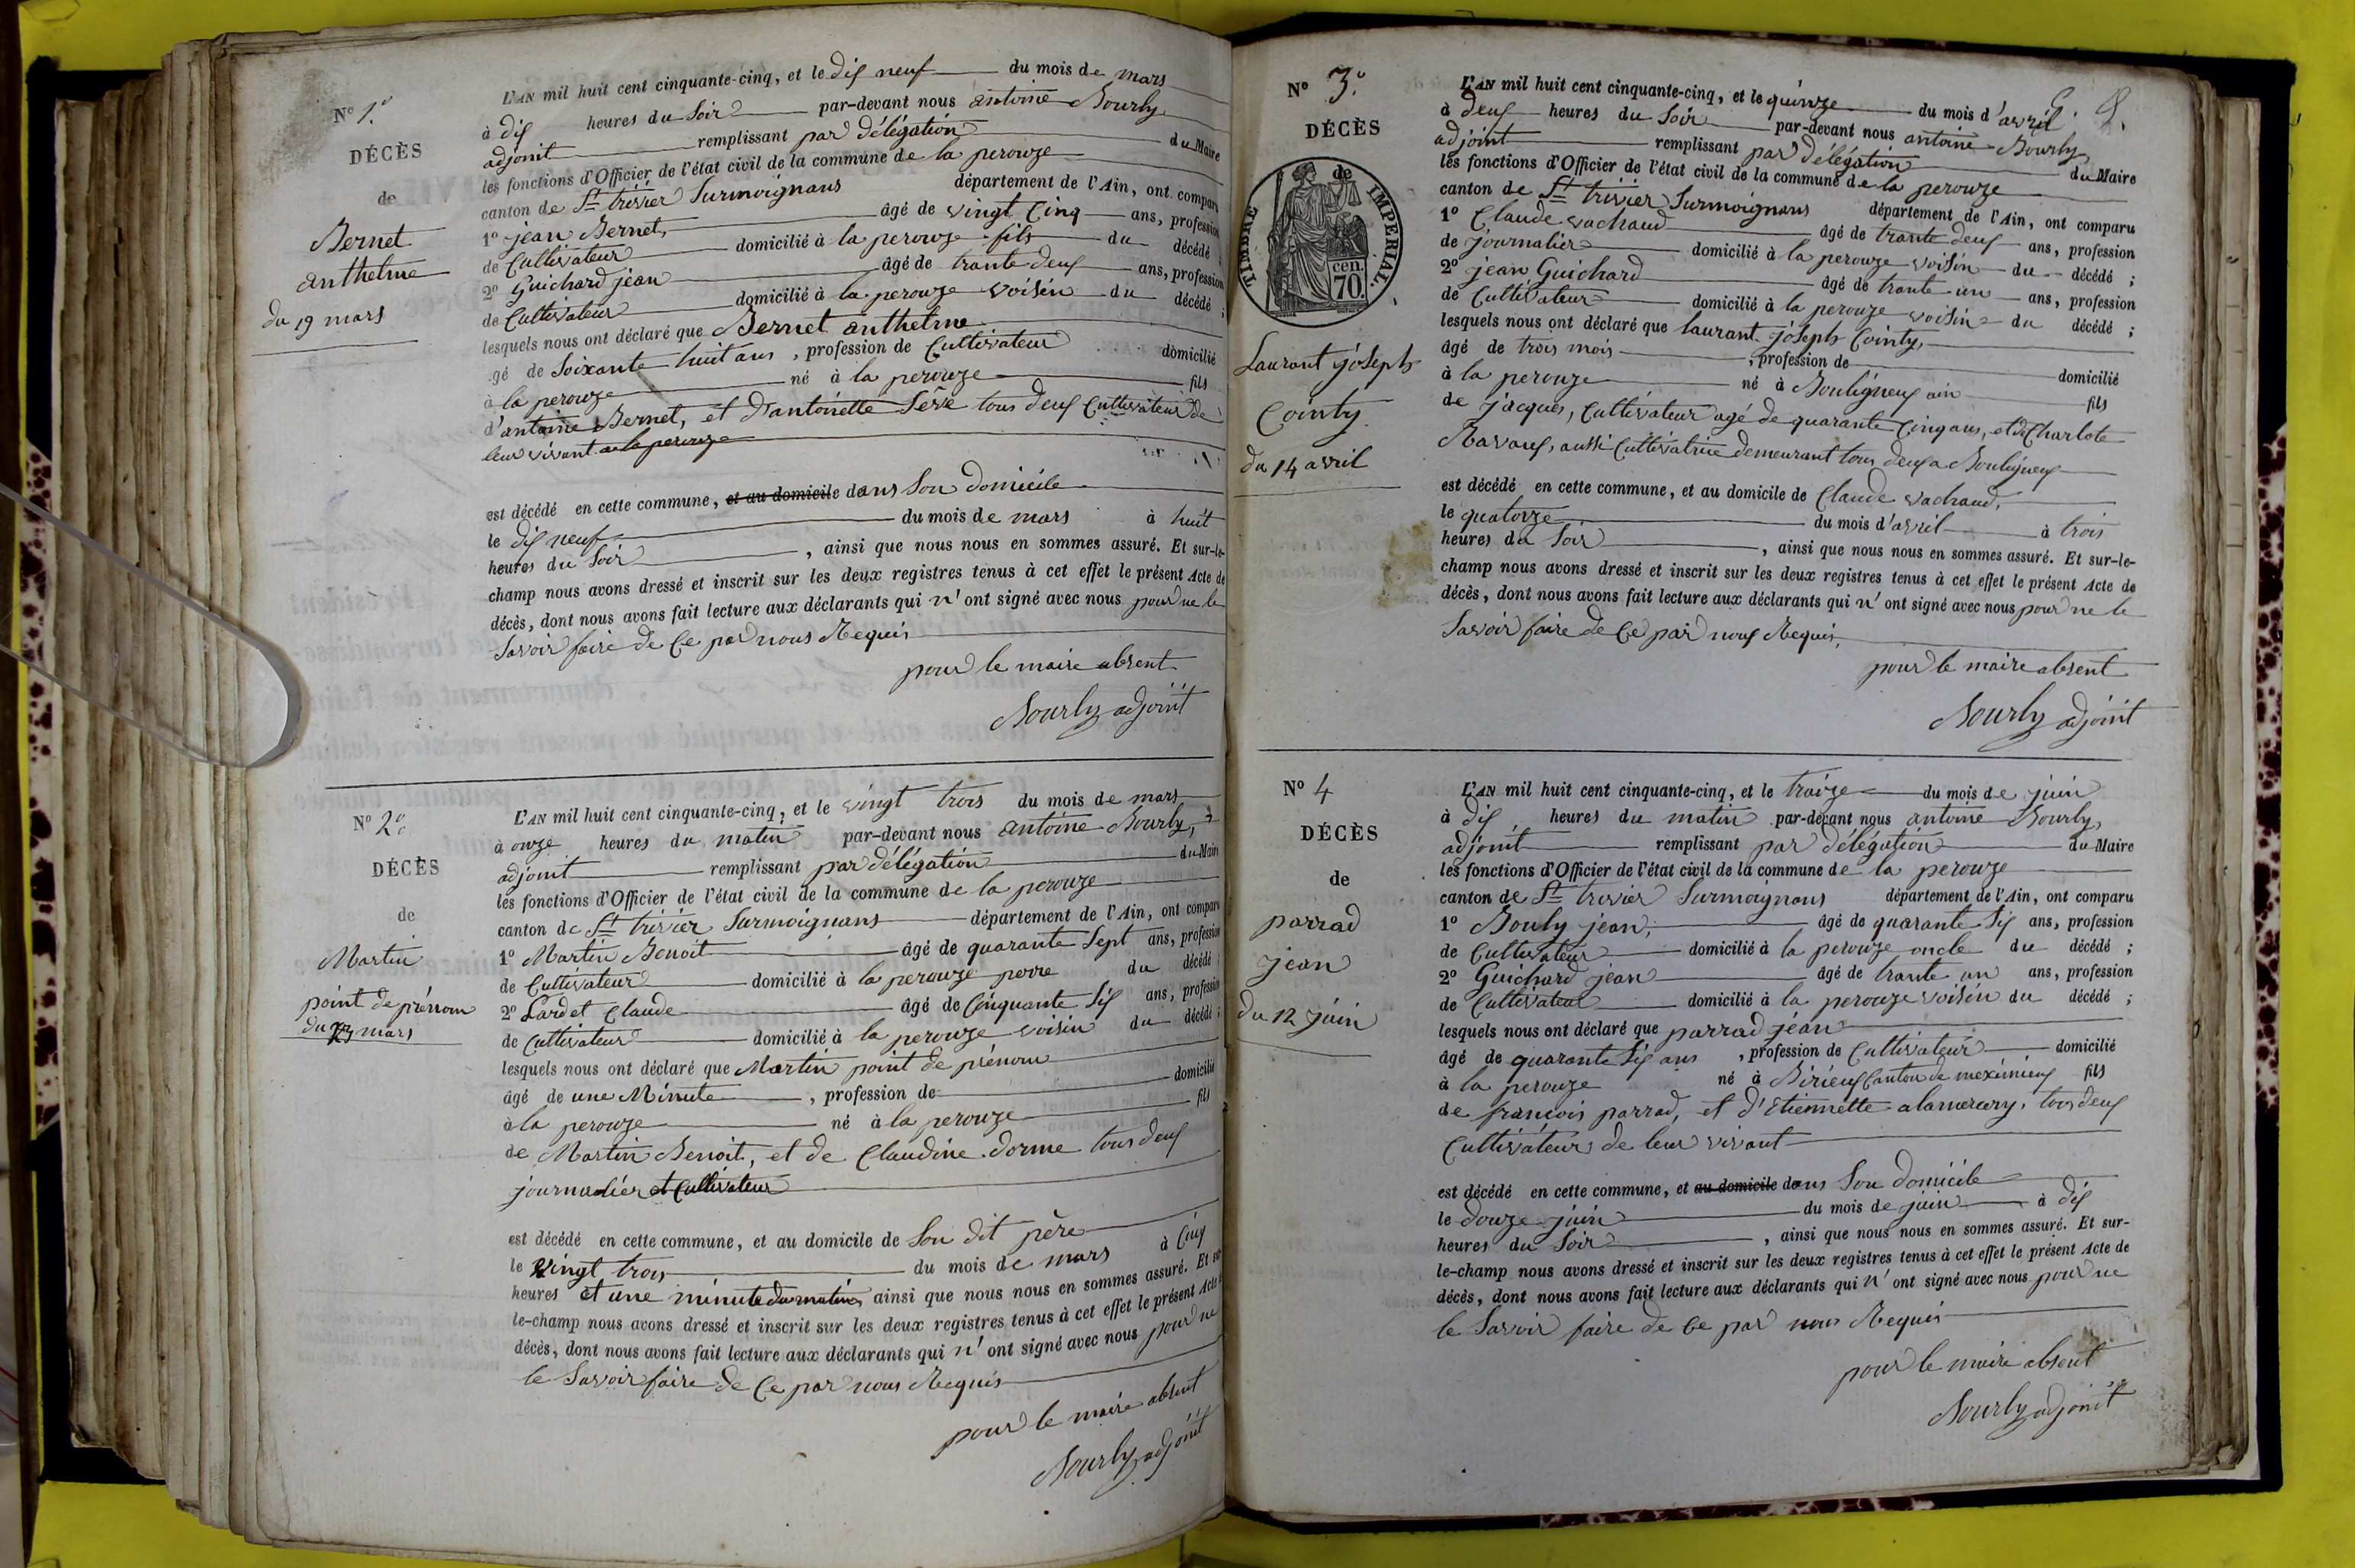 N° 1°.
DÉCÈS
de
Bernet
anthelme
du 19 mars
L'AN mil huit cent cinquante-cinq, et le dix neuf du mois de mars
à dix heures du soir par-devant nous antoine Bourly
adjoint remplissant par délégation du Maire
les fonctions d'Officier de l'état civil de la commune de la perouze
canton de St trivier Surmoignans département de l'Ain, ont comparu
1° jean Bernet, âgé de vingt cinq ans, profession
de Cultivateur domicilié à la perouze fils du décédé ;
2° Guichard jean âgé de trante deux ans, profession
de Cultivateur domicilié à la perouze voisin du décédé ;
lesquels nous ont déclaré que Bernet anthelme
gé de Soixante huit ans , profession de Cultivateur domicilié
à la perouze né à la perouze fils
d'antoine Bernet, et d'antoinette Seve tous deux Cultivateur de
leur vivant a la perouze
est décédé en cette commune, et au domicile dans Son domicile
le dix neuf du mois de mars à huit
heures du Soir , ainsi que nous nous en sommes assuré. Et sur-le-
champ nous avons dressé et inscrit sur les deux registres tenus à cet effet le présent Acte de
décès, dont nous avons fait lecture aux déclarants qui n'ont signé avec nous pour ne le
Savoir faire de Ce par nous Requis
pour le maire absent
Bourly adjoint
N° 2°
DÉCÈS
de
Martin
point de prénom
du 23 mars
L'AN mil huit cent cinquante-cinq, et le vingt trois du mois de mars
à onze heures du matin par-devant nous antoine Bourly,
adjoint remplissant par délégation du Maire
les fonctions d'Officier de l'état civil de la commune de la perouze
canton de St trivier Surmoignans département de l'Ain, ont comparu
1° Martin Benoit âgé de quarante Sept ans, profession
de Cultivateur domicilié à la perouze perre du décédé ;
2° Lardet Claude âgé de Cinquante Six ans, profession
de Cultivateur domicilié à la perouze voisin du décédé ;
lesquels nous ont déclaré que Martin point de prénom
âgé de une Minute , profession de domicilié
à la perouze né à la perouze fils
de Martin Benoit, et de Claudine dorme tous deux
journaliér et Cultivateur
est décédé en cette commune, et au domicile de Son dit père
le vingt trois du mois de mars à Cinq
heures et une minute du matin, ainsi que nous nous en sommes assuré. Et sur
le-champ nous avons dressé et inscrit sur les deux registres tenus à cet effet le présent Acte
décès, dont nous avons fait lecture aux déclarants qui n'ont signé avec nous pour ne
le Savoir faire de Ce par nous Requis
pour le maire absent
Bourly adjoint
N° 3°.
DÉCÈS
de
TIMBRE IMPERIAL.
70 cen.
Laurant jóseph
Cointy
du 14 avril
L'AN mil huit cent cinquante-cinq, et le quinze du mois d'avril
à deux heures du Soir par-devant nous antoine Bourly,
adjoint remplissant par délégation du Maire
les fonctions d'Officier de l'état civil de la commune de la perouze
canton de St trivier Surmoignans département de l'Ain, ont comparu
1° Claude vachaud âgé de trante deux ans, profession
de journalier domicilié à la perouze voisin du décédé ;
2° jean Guichard âgé de trante un ans, profession
de Cultivateur domicilié à la perouze voisin du décédé ;
lesquels nous ont déclaré que laurant jóseph Cointy,
âgé de trois mois , profession de domicilié
à la perouze né à Bouligneux ain fils
de jacques, Cultivateur agé de quarante Cinq ans, et de Charlote
Ravaux, aussi Cultivatrice demeurant tous deux a Bouligneux
est décédé en cette commune, et au domicile de Claude vachaud,
le quatorze du mois d'avril à trois
heures du Soir , ainsi que nous nous en sommes assuré. Et sur-le-
champ nous avons dressé et inscrit sur les deux registres tenus à cet effet le présent Acte de
décès, dont nous avons fait lecture aux déclarants qui n'ont signé avec nous pour ne le
Savoir faire de Ce par nous Requis,
pour le maire absent
Bourly adjoint
N° 4
DÉCÈS
de
parrad
jean
du 12 juin
L'AN mil huit cent cinquante-cinq, et le traize du mois de juin
à dix heures du matin par-devant nous antoine Bourly,
adjoint remplissant par délégation du Maire
les fonctions d'Officier de l'état civil de la commune de la perouze
canton de St trivier Surmoignans département de l'Ain, ont comparu
1° Bouly jean, âgé de quarante Six ans, profession
de Cultivateur domicilié à la perouze oncle du décédé ;
2° Guichard jean âgé de trante un ans, profession
de Cultivateur domicilié à la perouze voisin du décédé ;
lesquels nous ont déclaré que parrad jean
âgé de quarante Six ans , profession de Cultivateur domicilié
à la perouze né à Birieux Canton de meximieux fils
de françois parrad, et d'Etiennette alamercery, tous deux
Cultivateurs de leur vivant
est décédé en cette commune, et au domicile dans Son domicile
le douze juin du mois de juin à dix
heures du Soir , ainsi que nous nous en sommes assuré. Et sur-
le-champ nous avons dressé et inscrit sur les deux registres tenus à cet effet le présent Acte de
décès, dont nous avons fait lecture aux déclarants qui n'ont signé avec nous pour ne
le Savoir faire de Ce par nous Requis
pour le maire absent
Bourly adjoint